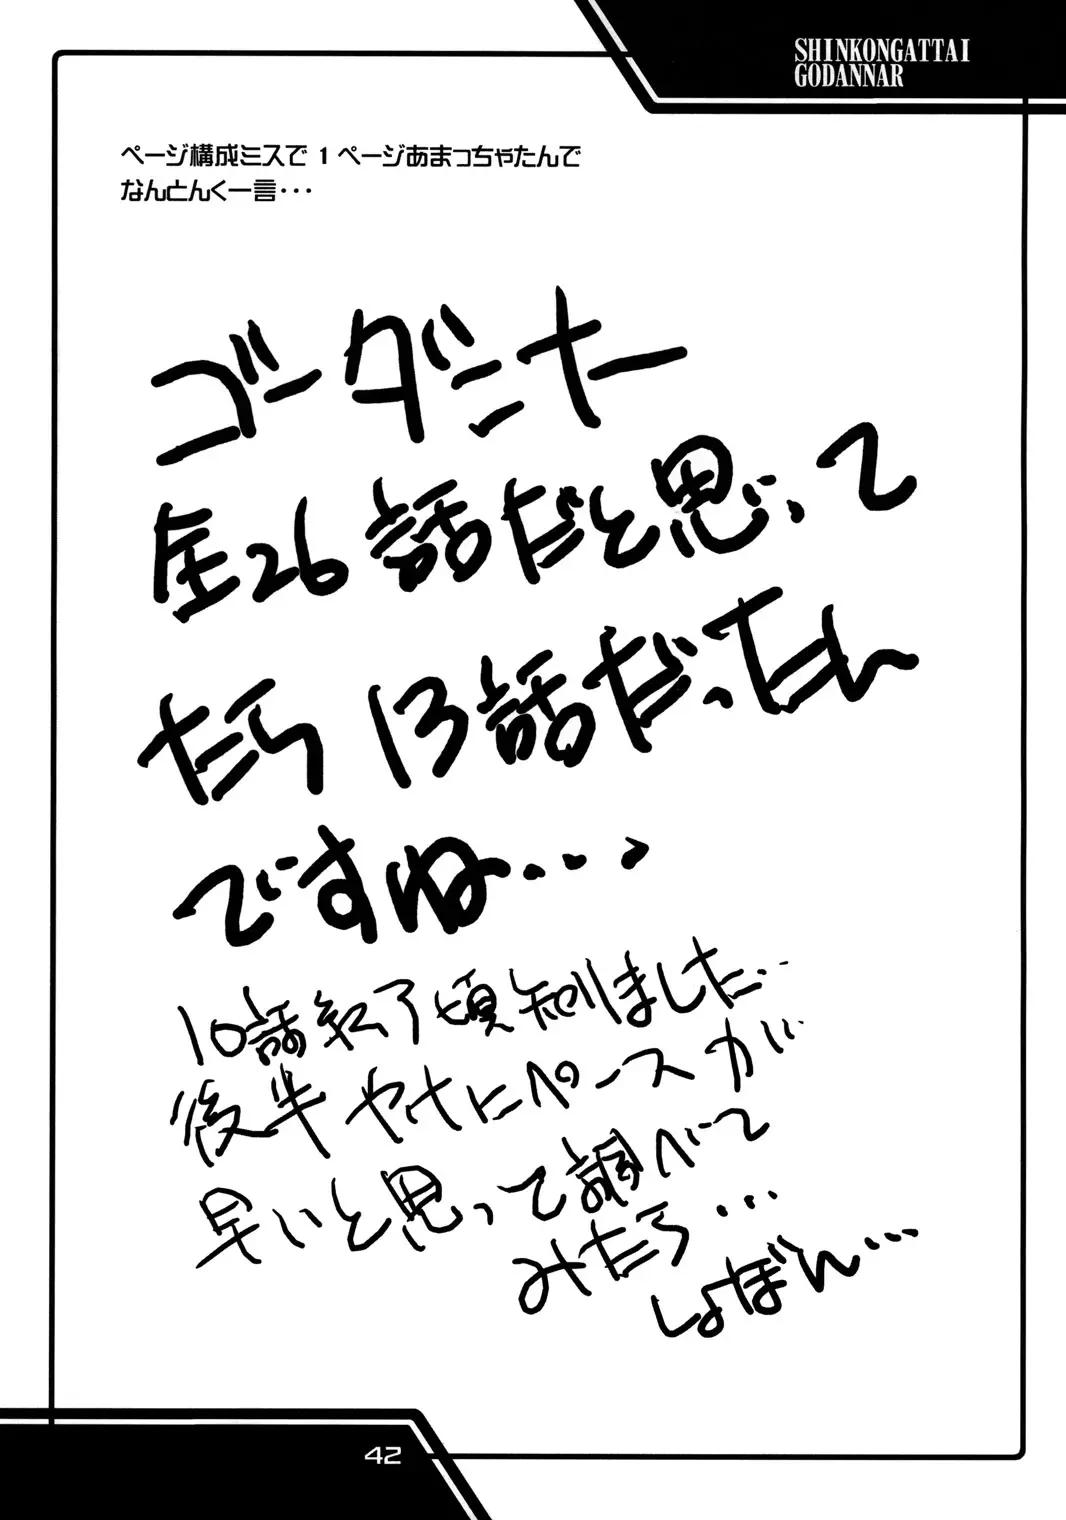 SHINKONGATTAI
GODANNAR
ページ構成ミスで1ページあまっちゃたんで
なんとんく一言・・・
ゴーダンナー
全26話だと思って
たら13話だったん
ですね・・・、
10話終了頃知りました…
後半やけにペースが
早いと思って調べて
みたら・・・
しょぼん・・・
42